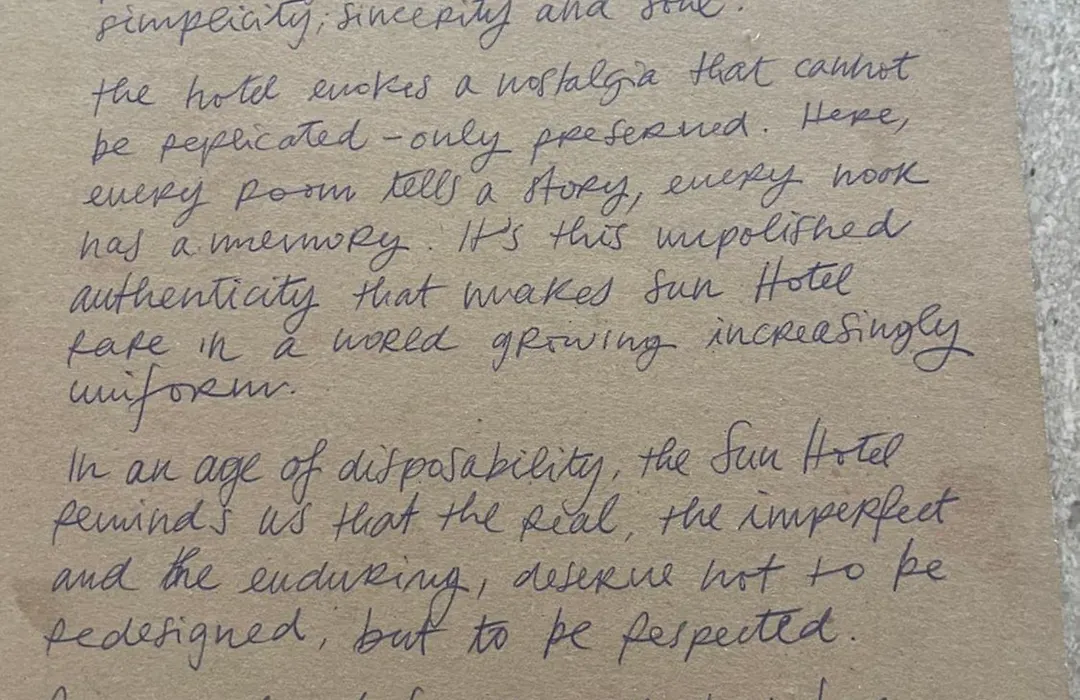 simplicity, sincerity and soul.
the hotel evokes a nostalgia that cannot
be replicated - only preserved. Here,
every room tells a story, every nook
has a memory. It's this unpolished
authenticity that makes Sun Hotel
rare in a world growing increasingly
uniform.
In an age of disposability, the Sun Hotel
reminds us that the real, the imperfect
and the enduring, deserve not to be
redesigned, but to be respected.